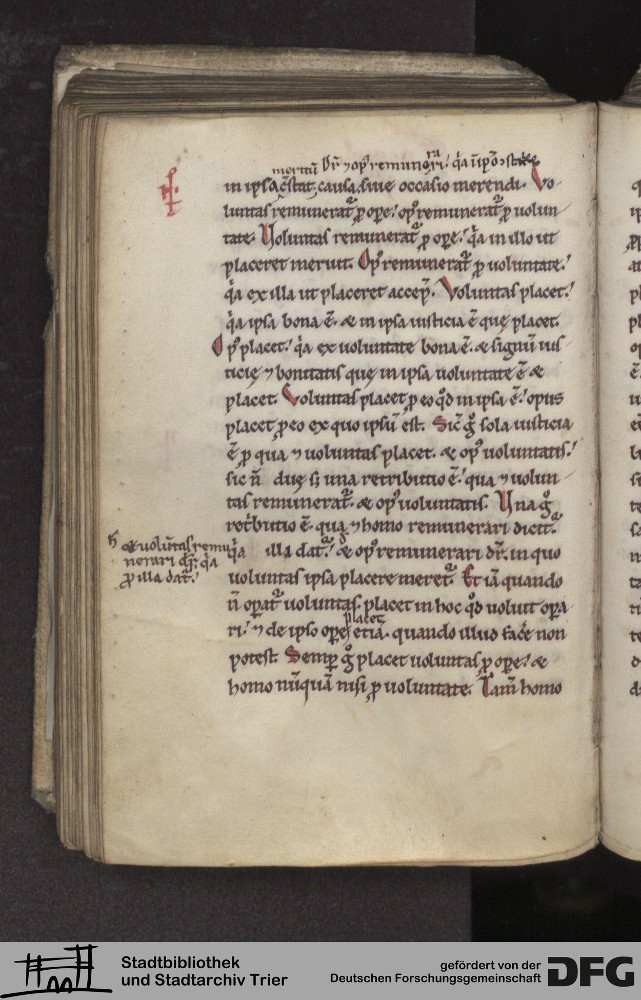 meritū Dr̄ ⁊ op᷒ remunerari. q̇a ī ip̄o ꝯstat
in ipsa ꝯstat causa. siue occasio merendi. Vo
luntas remunerat᷑ ꝓ ope. op᷒ remunerat᷑ ꝓ uolun
tate. Voluntas remunerat᷑ ꝓ ope. q̇a in illo ut
placeret meruit. Op᷒ remunerat᷑ ꝓ uoluntate.
q̇a ex illa ut placeret accep̄. Voluntas placet.
q̇a ipsa bona ē. & in ipsa iusticia ē quę placet.
Op᷒ placet. q̇a ex uoluntate bona ē. & signū ius
ticię ⁊ bonitatis quę in ipsa uoluntate ē &
placet. Voluntas placet ꝓ eo qd̄ in ipsa ē. opus
placet ꝓ eo ex quo ipsū est. Sic̄ gͦ sola iusticia
ē ꝓ qua ⁊ uoluntas placet. & op᷒ uoluntatis.
sic n̄ duę sꝫ una retributio ē. qua ⁊ uolun
tas remunerat᷑. & op᷒ uoluntatis. Vna gͦ
ret̓butio ē. qua ⁊ homo remunerari dicit᷑.
q̇a illa dat᷑. & op᷒ remunerari dr̄. in quo
uoluntas ipsa placere meret᷑. Et iā quando
n̄ opat᷑ uoluntas. placet in hoc qd̄ uoluit opa
ri. ⁊ de ipso ope placet etiā. quando illud face non
potest. Semꝑ gͦ placet uoluntas ꝓ ope. &
homo nūquā nisi ꝓ uoluntate. Tam̄ homo
& uolūtas remu
nerari dr̄. q̇a
ꝓ illa dat᷑.
Stadtbibliothek
und Stadtarchiv Trier
gefördert von der
Deutschen Forschungsgemeinschaft
DFG